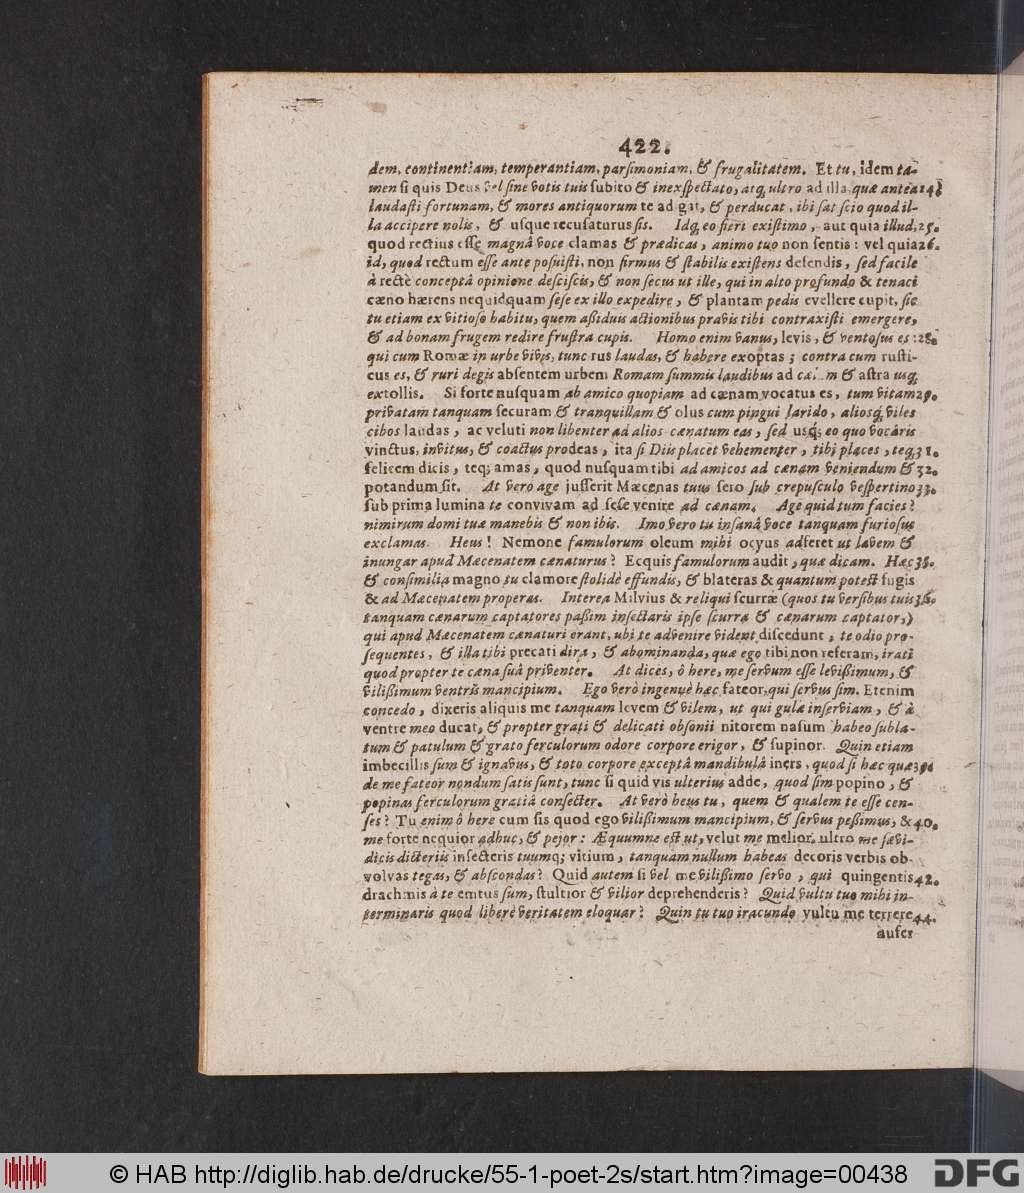 422.
dem, continentiam, temperantiam, parsimoniam, & frugalitatem. Et tu, idem ta-
men si quis Deus vel sine votis tuis subito & inexspectato, atq́ ultro ad illa, quæ antea 24
laudasti fortunam, & mores antiquorum te adigat, & perducat, ibi sat scio quod il-
la accipere nolis, & usque recusaturus sis. Idq́ eo fieri existimo, aut quia illud, 25.
quod rectius esse magnâ voce clamas & prædicas, animo tuo non sentis: vel quia 26.
id, quod rectum esse ante posuisti, non firmus & stabilis existens defendis, sed facile
à rectè conceptâ opinione desciscis, & non secus ut ille, qui in alto profundo & tenaci
cæno hærens nequidquam sese ex illo expedire, & plantam pedis evellere cupit, sic
tu etiam ex vitioso habitu, quem aßiduis actionibus pravis tibi contraxisti emergere,
& ad bonam frugem redire frustra cupis. Homo enim vanus, levis, & ventosus es: 28.
qui cum Romæ in urbe vivis, tunc rus laudas, & habere exoptas; contra cum rusti-
cus es, & ruri degis absentem urbem Romam summis laudibus ad cælum & astra usq́
extollis. Si forte nusquam ab amico quopiam ad cænam vocatus es, tum vitam 29.
privatam tanquam securam & tranquillam & olus cum pingui larido, aliosq́ viles
cibos laudas, ac veluti non libenter ad alios cænatum eas, sed usq́; eo quo vocaris
vinctus, invitus, & coactus prodeas, ita si Diis placet vehementer, tibi places, teq́ 31.
felicem dicis, teq́; amas, quod nusquam tibi ad amicos ad cænam veniendum & 32.
potandum sit. At vero age jusserit Mæcenas tuus sero sub crepusculo vespertino 33.
sub prima lumina te convivam ad sese venire ad cænam. Age quid tum facies?
nimirum domi tuæ manebis & non ibis. Imo vero tu insanâ voce tanquam furiosus
exclamas. Heus! Nemone famulorum oleum mihi ocyus adferet ut lavem &
inungar apud Mæcenatem cænaturus? Ecquis famulorum audit, quæ dicam. Hæc 35.
& consimilia magno tu clamore stolidè effundis, & blateras & quantum potest fugis
& ad Mæcenatem properas. Interea Milvius & reliqui scurræ (quos tu versibus tuis 36.
tanquam cænarum captatores paßim insectaris ipse scurra & cænarum captator,)
qui apud Mæcenatem cænaturi erant, ubi te advenire vident discedunt, te odio pro-
sequentes, & illa tibi precati dira, & abominanda, quæ ego tibi non referam, irati
quod propter te cæna suâ priventer. At dices, ô here, me servum esse levißimum, &
vilißimum ventris mancipium. Ego verò ingenuè hæc fateor, qui servus sim. Etenim
concedo, dixeris aliquis me tanquam levem & vilem, ut qui gulæ inserviam, & à
ventre meo ducat, & propter grati & delicati obsonii nitorem nasum habeo subla-
tum & patulum & grato ferculorum odore corpore erigor, & supinor. Quin etiam
imbecillis sum & ignavus, & toto corpore exceptâ mandibulâ iners, quod si hæc quæ 39.
de me fateor nondum satis sunt, tunc si quid vis ulterius adde, quod sim popino, &
popinas ferculorum gratiâ consecter. At verò heus tu, quem & qualem te esse cen-
ses? Tu enim ô here cum sis quod ego vilißimum mancipium, & servus peßimus, & 40.
me forte nequior adhuc, & pejor: Æquumne est ut, velut me melior, ultro me sævi-
dicis dicteriis insecteris tuumq́; vitium, tanquam nullum habeas decoris verbis ob-
volvas tegas, & abscondas? Quid autem si vel me vilißimo servo, qui quingentis 42.
drachmis à te emtus sum, stultior & vilior deprehenderis? Quid vultu tuo mihi in-
terminaris quod liberè veritatem eloquar? Quin tu tuo iracundo vultu me terrere 44.
aufer
© HAB http://diglib.hab.de/drucke/55-1-poet-2s/start.htm?image=00438
DFG